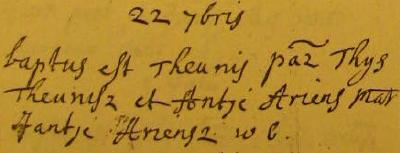 22 7bris
baptus est Theunis pat Thys
Theunisz et Antje Ariens mat
Jantje Ariensz w b.